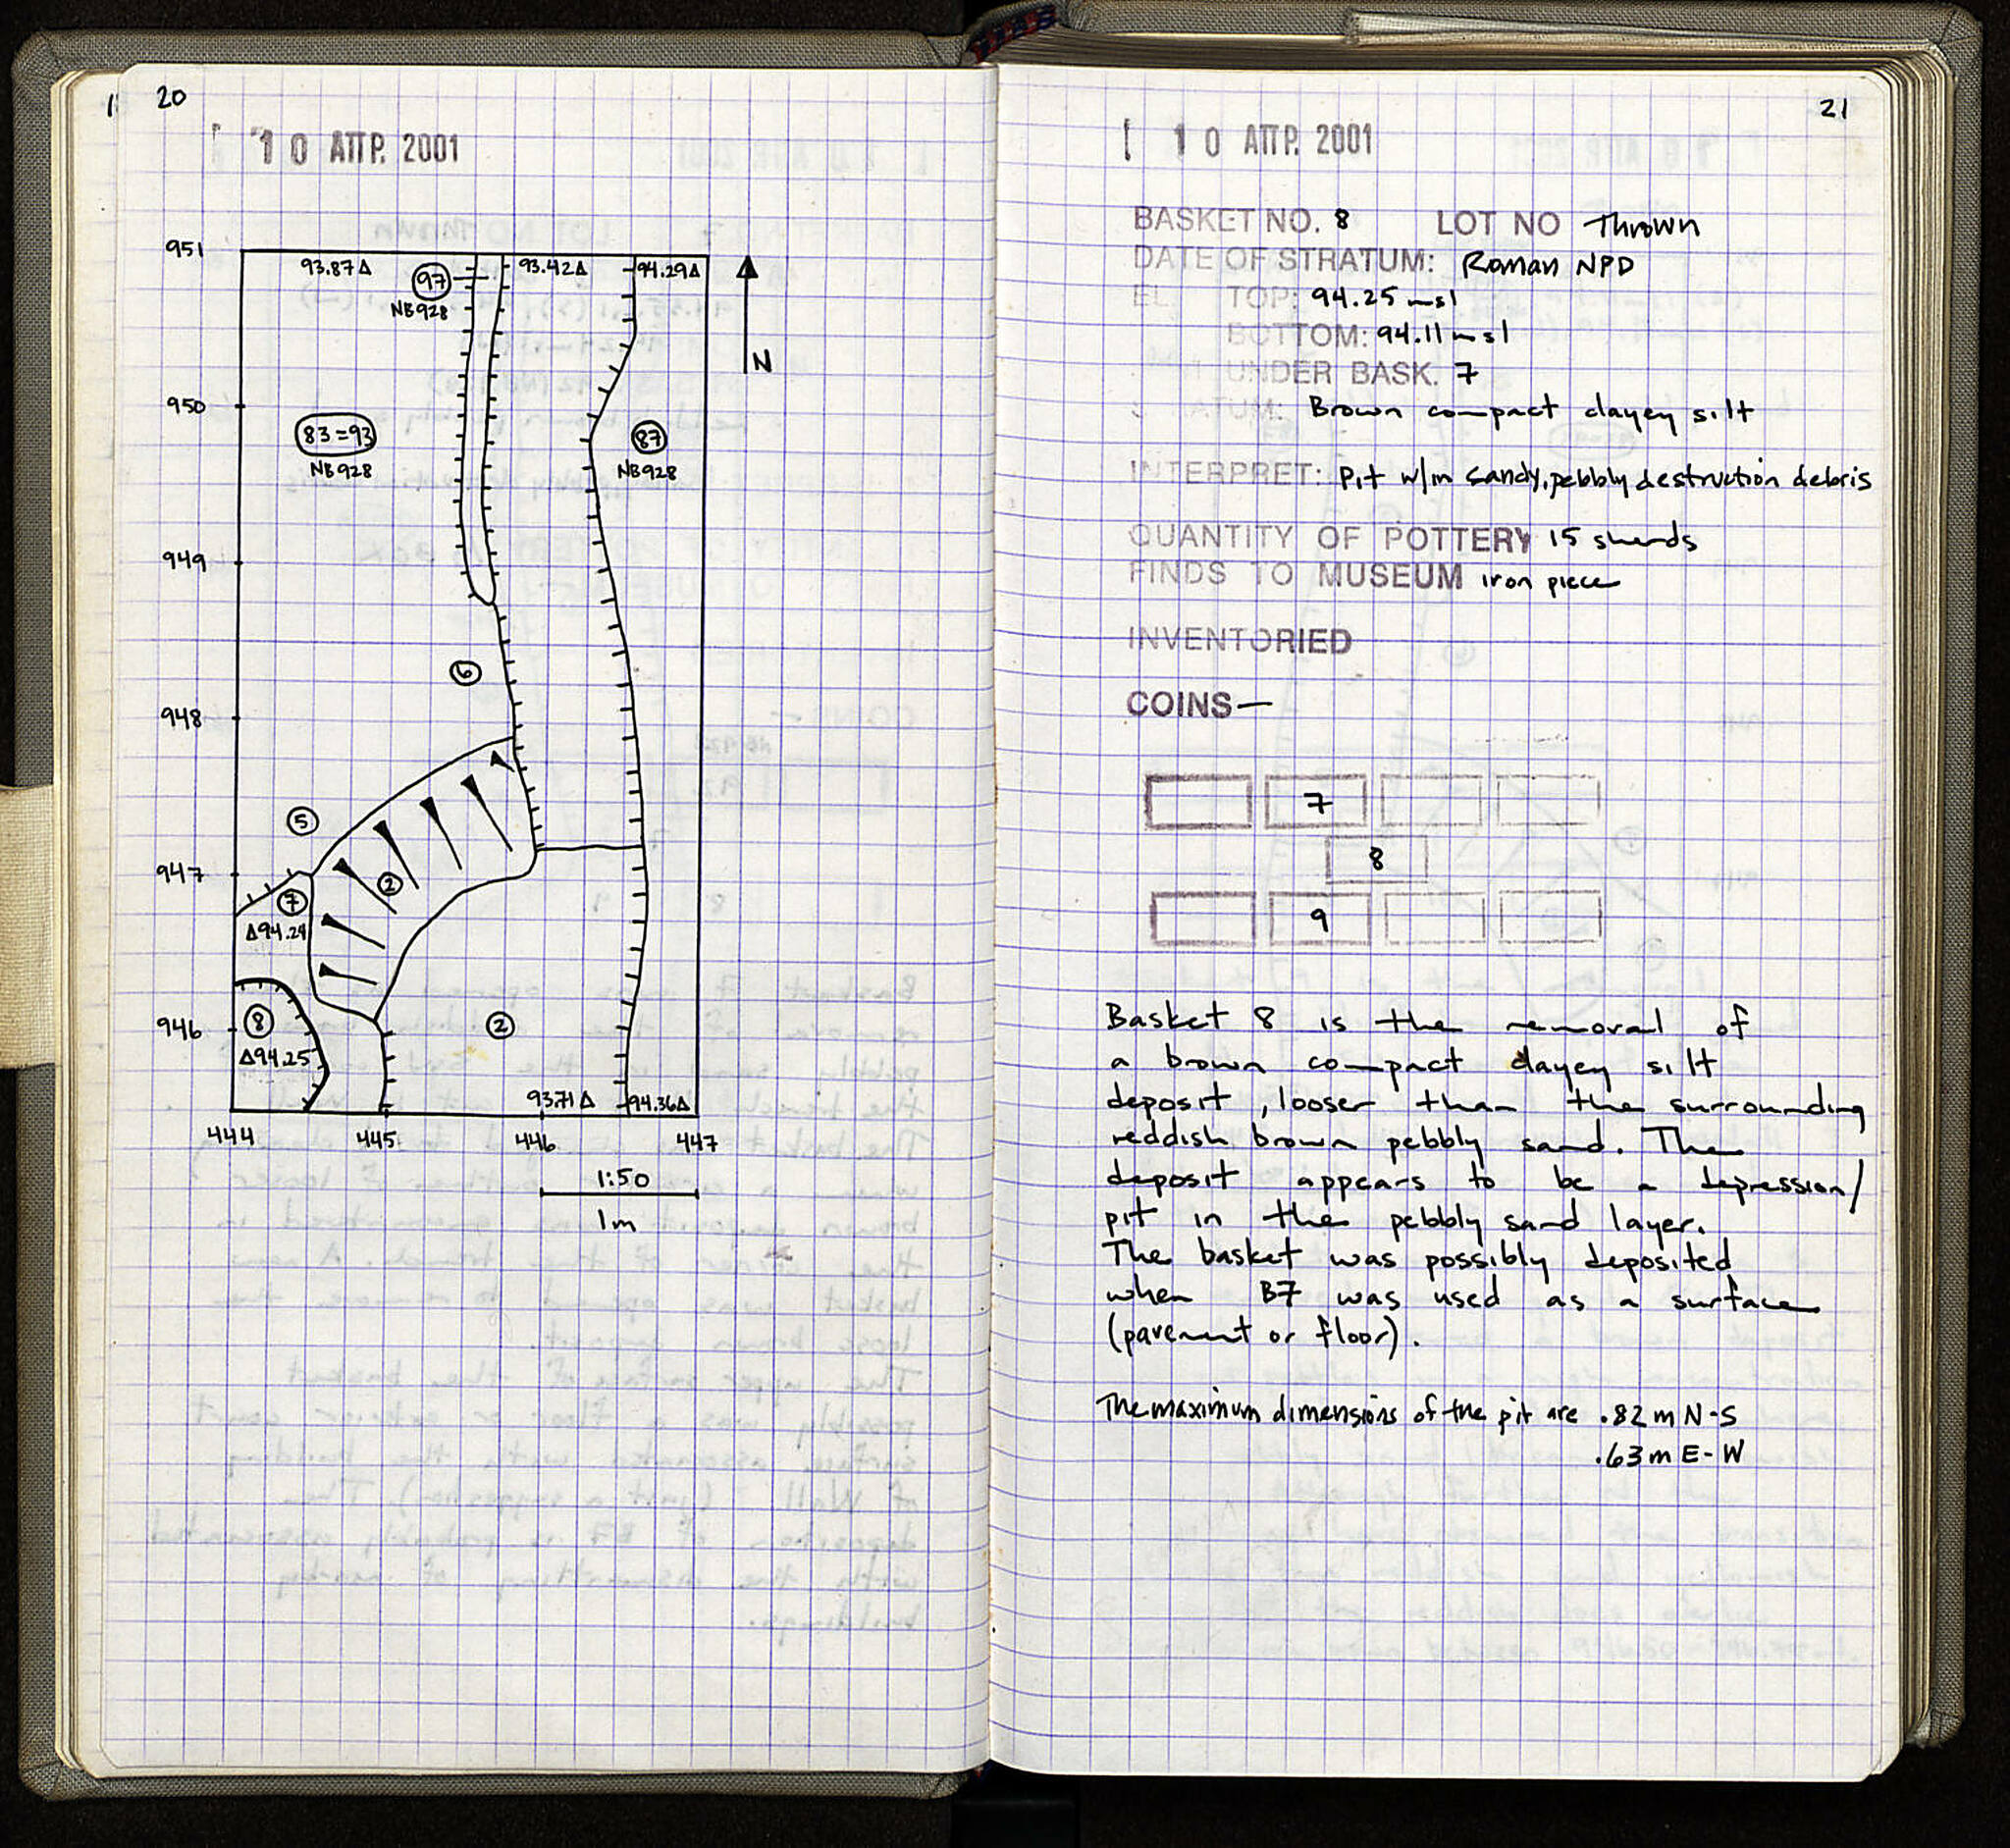 20
10 ΑΠΡ. 2001
951
93.87Δ
97
NB928
93.42Δ
94.29Δ
N
950
83=93
NB928
87
NB928
949
6
948
5
947
7
Δ94.24
2
946
8
Δ94.25
2
93.71Δ
94.36Δ
444 445 446 447
1:50
1m
21
10 ΑΠΡ. 2001
BASKET NO. 8 LOT NO Thrown
DATE OF STRATUM: Roman NPD
EL. TOP: 94.25 msl
BOTTOM: 94.11 msl
UNDER BASK. 7
STRATUM: Brown compact clayey silt
INTERPRET: Pit w/in sandy, pebbly destruction debris
QUANTITY OF POTTERY 15 sherds
FINDS TO MUSEUM iron piece
INVENTORIED
COINS—
7
8
9
Basket 8 is the removal of
a brown compact clayey silt
deposit, looser than the surrounding
reddish brown pebbly sand. The
deposit appears to be a depression/
pit in the pebbly sand layer.
The basket was possibly deposited
when B7 was used as a surface
(pavement or floor).
The maximum dimensions of the pit are .82m N-S
.63m E-W